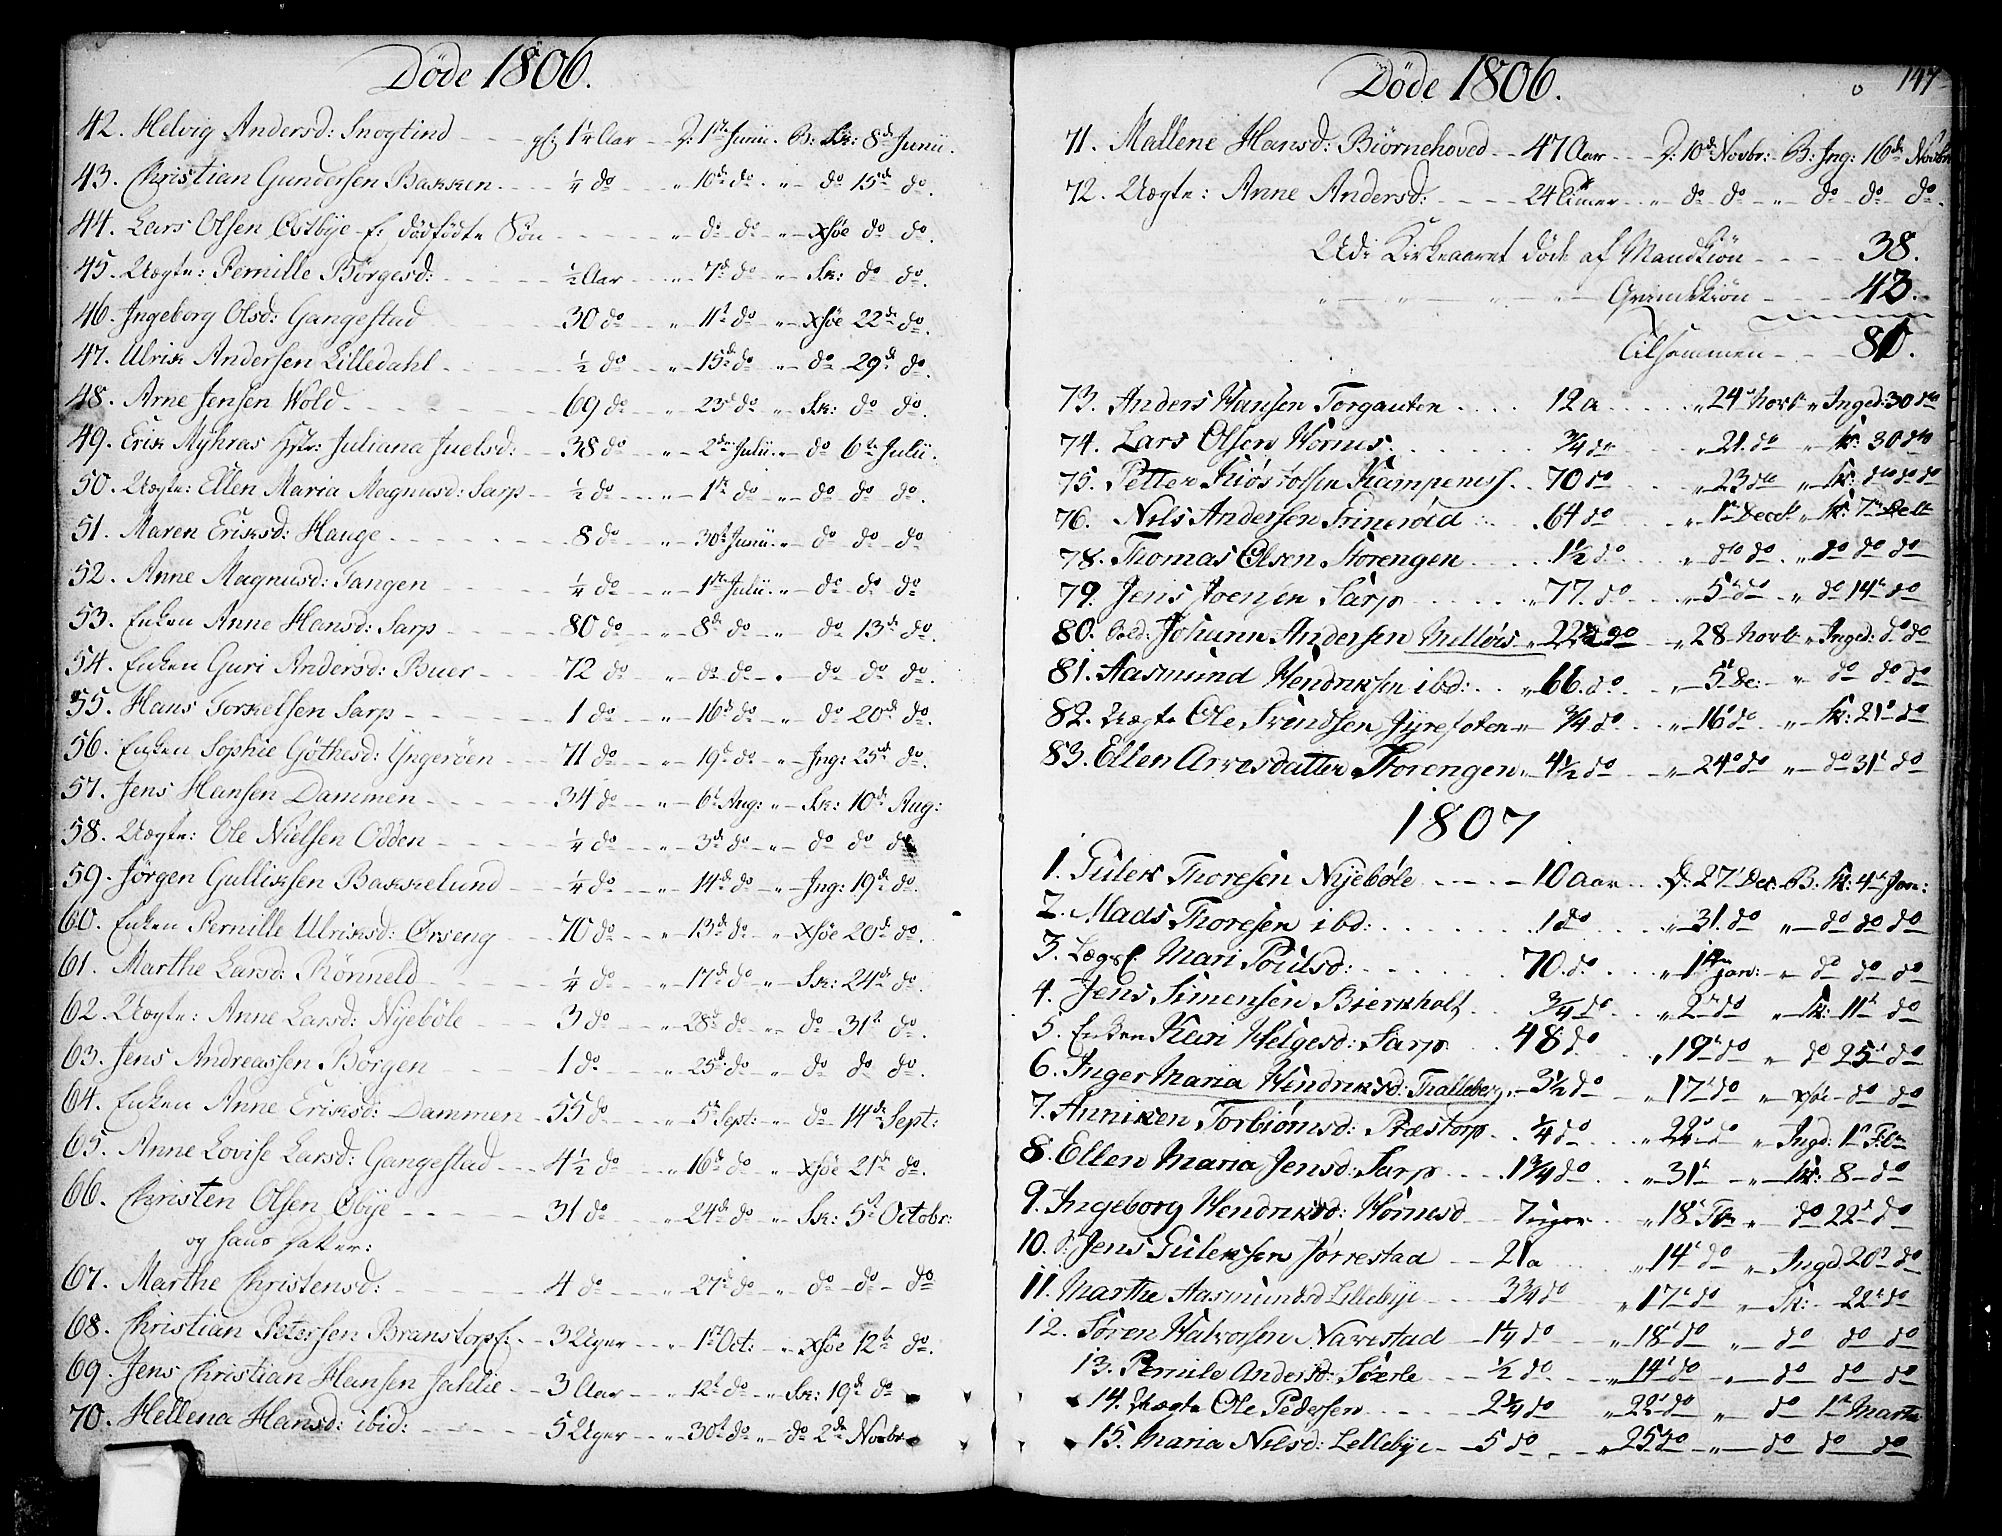 Døde 1806.
42. Helvig Andersd: Snogtind gl: 1¼ Aar D: 1ste Junii. B: Sk: 8de Junii.
43. Christian Gundersen Bakken ¼ do " 10de do " do 15de do.
44. Lars Olsen Østbye f. dødfødte Søn " do do " Xsøe do do.
45. Uægte: Pernille Børgesd: ½ Aar " 7de do " Sk: do do.
46. Ingeborg Olsd: Gangestad 30 do " 11te do " Xsøe 22de do.
47. Ulrik Andersen Lilledahl ½ do " 15de do " do 29de do.
48. Arne Jensen Wold 69 do " 23de do " Sk: do do.
49. Erik Myhras Hstr: Juliana Juelsd: 38 do " 2den Julii " do 6te Julii.
50. Uægte: Ellen Maria Magnusd: Sarp ½ do " 1ste do " do do do.
51. Maren Eriksd: Hauge 8 do " 30te Junii " do do do
52. Anne Magnusd: Tangen ¼ do " 1ste Julii " do do do
53. Enken Anne Hansd: Sarp 80 do " 8de do " do 13de do.
54. Enken Guri Andersd: Buer 72 do " do do " do do do.
55. Hans Torkelsen Sarp 1 do " 16de do " do 20de do.
56. Enken Sophie Gøthesd: Yngerøen 71 do " 19de do " Ing: 25de do.
57. Jens Hansen Dammen 34 do " 6te Aug: " Sk: 10de Aug:
58. Uægte: Ole Nielsen Odden ¼ do " 3de do " do do do
59. Jørgen Gulliksen Bakkelund ¼ do " 14de do " Ing: 19de do.
60. Enken Pernille Ulriksd: Ørseng 70 do " 13de do " Xsøe 20de do.
61. Marthe Larsd: Rønneld ¼ do " 17de do " Sk: 24de do.
62. Uægte: Anne Larsd: Nyebøle 3 do " 28de do " do 31te do.
63. Jens Andreassen Børgen 1 do " 25de do " do do do.
64. Enken Anne Eriksd: Dammen 55 do " 5te Sept: " do 14de Sept:
65. Anne Lovise Larsd: Gangestad 4½ do " 16de do " Xsøe 21de do.
66. Christen Olsen Øbye 31 do " 24de do " Sk: 5te Octobr:
og hans Datter:
67. Marthe Christensd: 4 do " 27de do " do do do
68. Christian Petersen Branstorp 3 Uger " 1ste Oct: " Xsøe 12te do.
69. Jens Christian Hansen Jahlie 3 Aar " 12te do " Sk: 19de do
70. Hellena Hansd: ibid: 5 Uger " 30te do " do 2de Novbr
Døde 1806. 147
71. Mallene Hansd: Biørnehoved 47 Aar D: 10de Novbr: B: Ing: 16de Novbr
72. Uægte: Anne Andersd: 24 Timer " do do " do do do.
Udi Kirkeaaret døde af Mandkiøn 38.
" " " " Qvindekiøn 43.
Tilsammen 81.
73. Anders Hansen Torgauten 12 a " 24de Novb " Inged: 30 do
74. Lars Olsen Hornes ¾ do " 21. do " Sk: 30 do
75. Petter Kiøstolsen Kampenes 70 do " 23 do " Sk: do do do
76. Nils Andersen Trinerød 64 do " 1ste Decb " Sk: 7de Decb
78. Thomas Olsen Storengen 1½ do " do do " do do do
79. Jens Joensen Sarp " 77. do " 5te do " do 14de do
80. Sold: Johann Andersen Melløis " 22½ do " 28 Novb " Inged: do do
81. Aasmund Hendriksen ibd: " 66. do " 5te De: " do do do
82. Uægte Ole Svindsen Fyrefoten " ¾ do " 16de do " Sk: 21de do
83. Ellen Arvesdatter Storengen " 4½ do " 24de do " do 31te do
1807
1. Gulek Thoresen Nyebøle 10 Aar D: 27de Dec. B: Sk: 4de Jan:
2. Mads Thoresen ibd: 1 do " 31. do " do do do
3. Lægsl. Mari Poulsd: 70. do " 1ste Jan: " do do do
4. Jens Simensen Bierkholt ¾ do " 2de do " Sk: 11te do
5. Enken Kari Helgesd: Sarp 48 do " 19de do " do 25de do
6. Inger Maria Hendriksd: Thalleberg 3½ do " 17de do " Xsøe do do
7. Anniken Torbiørnsd: Præstorp ¼ do " 22de do " Ingd: 1ste Feb
8. Ellen Maria Jensd: Sarp 1¾ do " 31te " Sk: 8 do
9. Ingeborg Hendriksd: Hornesd 7 uger " 18de Feb " do 22de do
10. S: Jens Guleksen Jørrestad 21 a " 14de do " Ingd 20de do
11. Marthe Aasmundsd Lillebye 3¾ do " 17de do " Sk: 22de do
12. Søren Halvorsen Navestad 1¼ do " 18de do " do do do
13. Pernile Andersd: Søerle ½ do " 14de do " do do do
14. Uægte Ole Pedersen 2¾ do " 22de do " do 1ste Marts
15. Maria Nilsd: Lellebye 5 do " 25 do " do do do